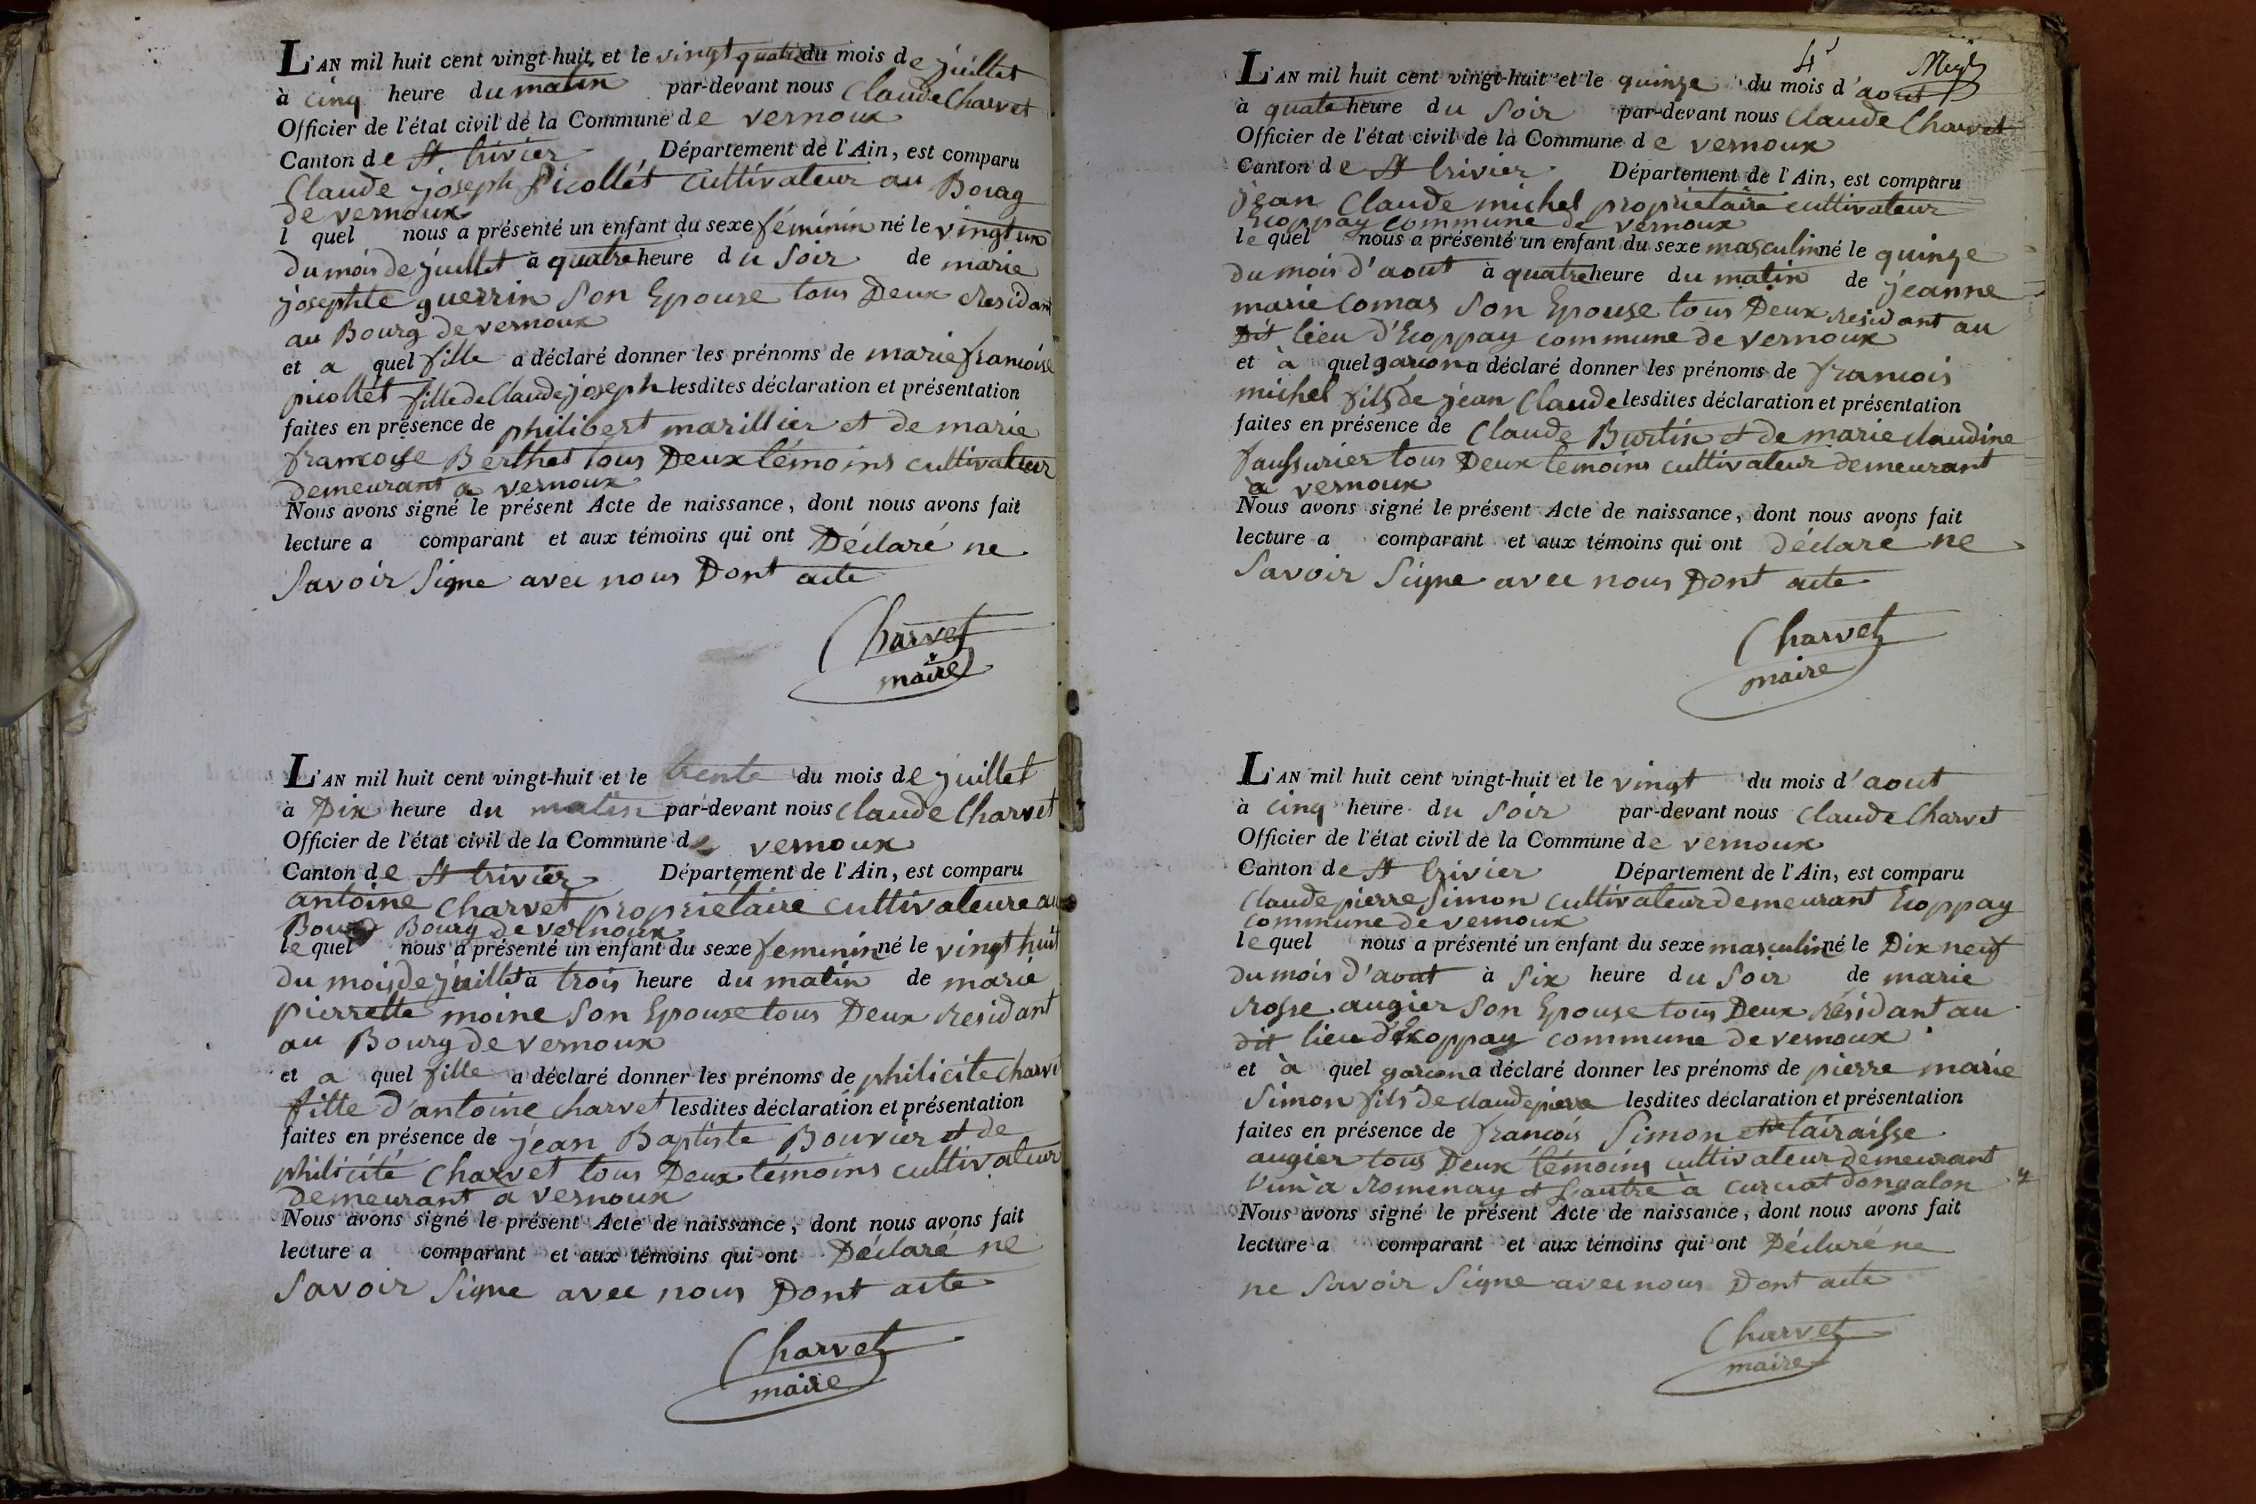 L'AN mil huit cent vingt-huit et le vingt quatre du mois de juillet
à cinq heure du matin par-devant nous Claude Charvet
Officier de l'état civil de la Commune de vernoux
Canton de St trivier Département de l'Ain, est comparu
Claude joseph Picollet cultivateur au Bourg
de vernoux
l quel nous a présenté un enfant du sexe féminin né le vingt un
du mois de juillet à quatre heure du Soir de marie
josephte guerrin Son Epouse tous Deux residant
au Bourg de vernoux
et a quel fille a déclaré donner les prénoms de marie francoise
picollet fille de Claude joseph lesdites déclaration et présentation
faites en présence de philibert marillier et de marie
francoise Berthet tous Deux témoins cultivateur
Demeurant a vernoux
Nous avons signé le présent Acte de naissance, dont nous avons fait
lecture a comparant et aux témoins qui ont Déclaré ne
Savoir Signe avec nous Dont acte
Charvet
maire
L'AN mil huit cent vingt-huit et le trente du mois de juillet
à Dix heure du matin par-devant nous Claude Charvet
Officier de l'état civil de la Commune de vernoux
Canton de St trivier Département de l'Ain, est comparu
antoine Charvet propriétaire cultivateure au
Bourg de vernoux
le quel nous a présenté un enfant du sexe feminin né le vingt huit
du mois de juillet à trois heure du matin de marie
pierrette moine Son Epouse tous Deux residant
au Bourg de vernoux
et a quel fille a déclaré donner les prénoms de philicité charvet
fille d'antoine charvet lesdites déclaration et présentation
faites en présence de jean Baptiste Bouvier et de
philicité Charvet tous Deux témoins cultivateur
Demeurant a vernoux
Nous avons signé le présent Acte de naissance, dont nous avons fait
lecture a comparant et aux témoins qui ont Déclaré ne
Savoir Signe avec nous Dont acte
Charvet
maire
L'AN mil huit cent vingt-huit et le quinze du mois d'aout
à quatre heure du Soir par-devant nous Claude Charvet
Officier de l'état civil de la Commune de vernoux
Canton de St trivier Département de l'Ain, est comparu
jean Claude michel propriétaire cultivateur
Ecoppay commune de vernoux
le quel nous a présenté un enfant du sexe masculin né le quinze
du mois d'aout à quatre heure du matin de jeanne
marie Comas Son Epouse tous Deux residant au
Dit lieu d'Ecoppay commune de vernoux
et à quel garcon a déclaré donner les prénoms de francois
michel fils de jean Claude lesdites déclaration et présentation
faites en présence de Claude Burtin et de marie claudine
faussurier tous Deux témoins cultivateur demeurant
a vernoux
Nous avons signé le présent Acte de naissance, dont nous avons fait
lecture a comparant et aux témoins qui ont déclaré ne
Savoir Signe avec nous Dont acte
Charvet
maire
L'AN mil huit cent vingt-huit et le vingt du mois d'aout
à cinq heure du Soir par-devant nous Claude Charvet
Officier de l'état civil de la Commune de vernoux
Canton de St trivier Département de l'Ain, est comparu
Claude pierre Simon cultivateur demeurant Ecoppay
commune de vernoux
le quel nous a présenté un enfant du sexe masculin né le Dix neuf
du mois d'aout à Six heure du Soir de marie
rosse augier Son Epouse tous Deux résidant au
dit lieu d'Ecoppay commune de vernoux
et à quel garcon a déclaré donner les prénoms de pierre marie
Simon fils de claude pierre lesdites déclaration et présentation
faites en présence de francois Simon et de tairaisse
augier tous Deux témoins cultivateur demeurant
l'un a romenay et l'autre à curciat dongalon
Nous avons signé le présent Acte de naissance, dont nous avons fait
lecture a comparant et aux témoins qui ont Déclaré ne
ne Savoir Signe avec nous Dont acte
Charvet
maire